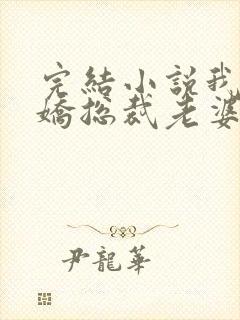 完結小說我
嬌總裁老婆
尹龍華